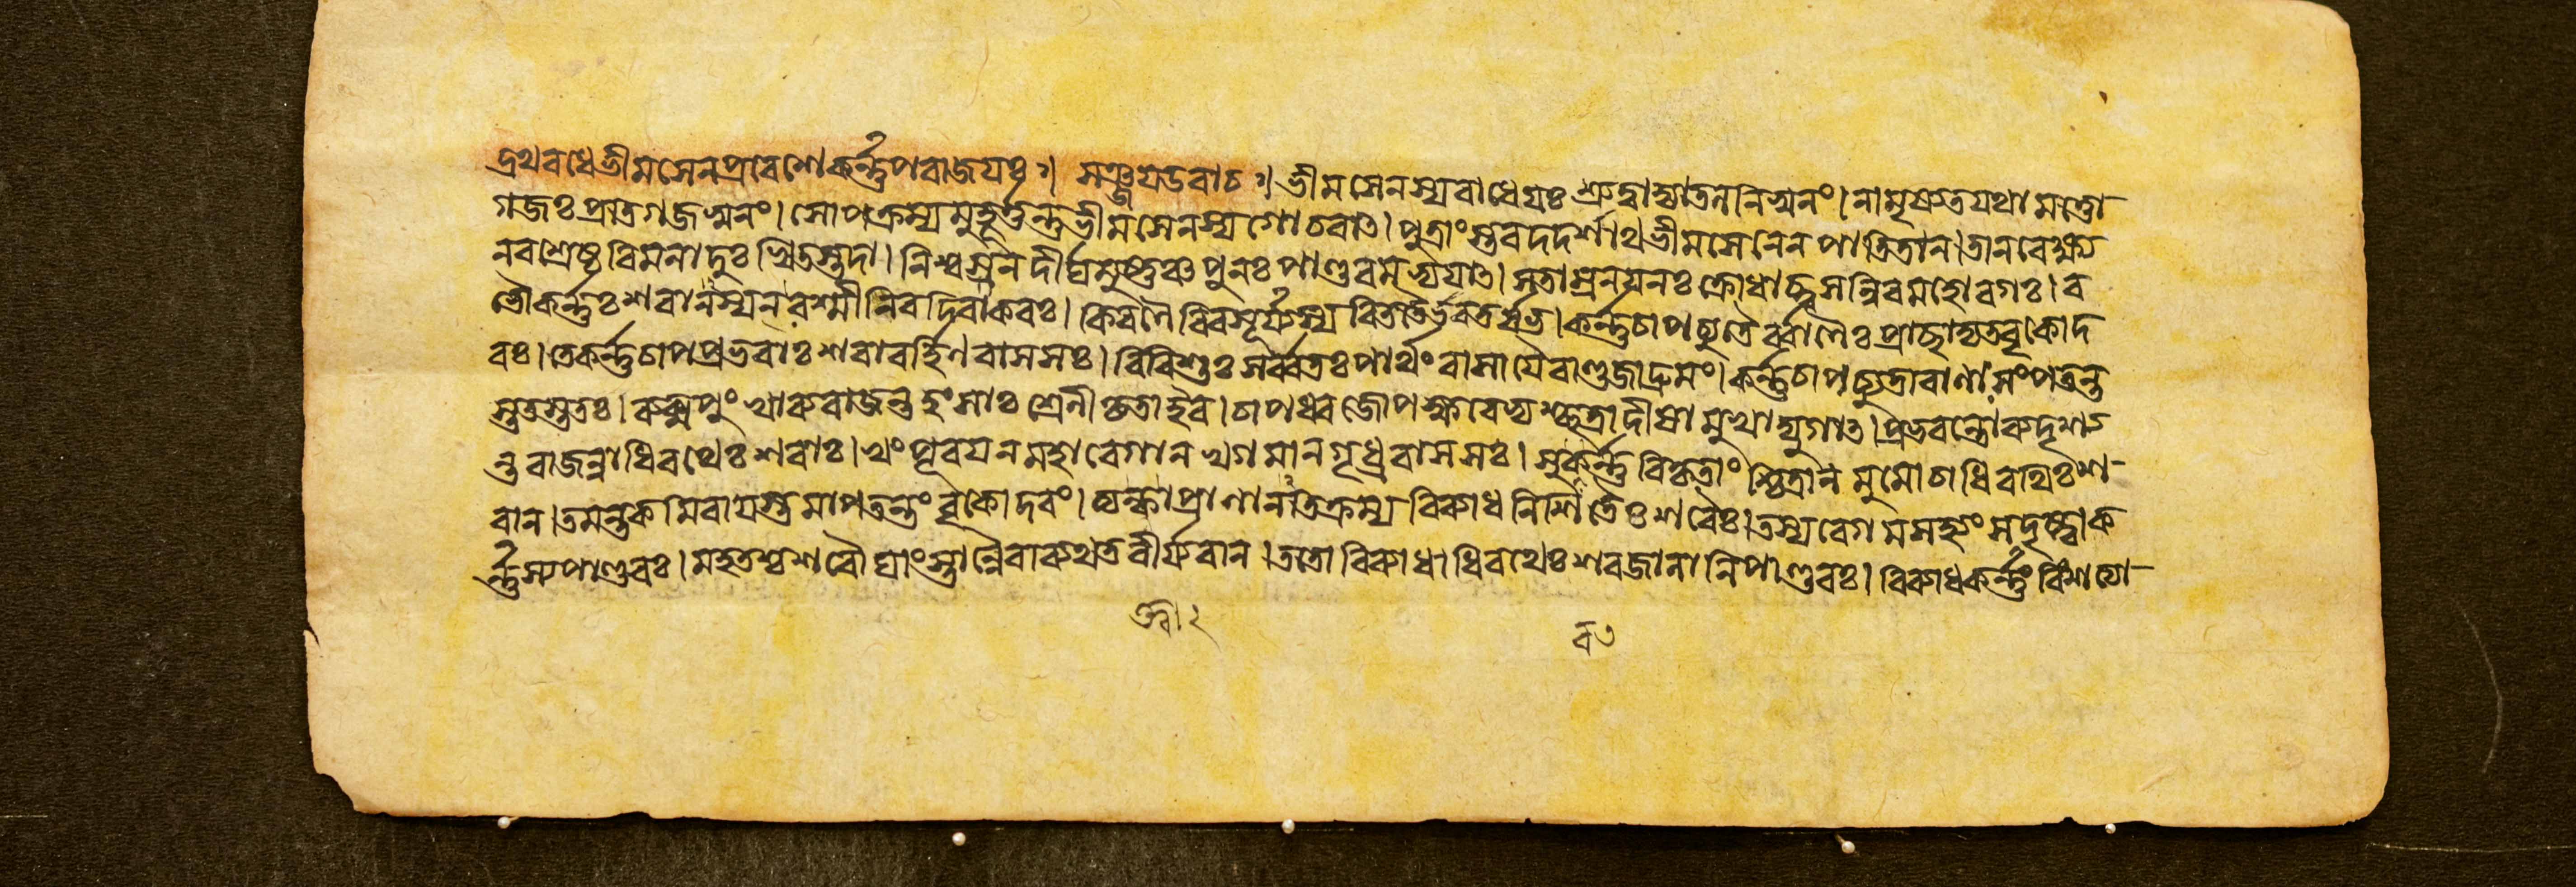 দ্রথবধে ভীমসেনপ্রবেশে কর্ন্নপরাজযঃ ঃ। সঞ্জয উবাচ ঃ। ভীমসেনস্য রাধেযঃ শ্রুত্বা জ্যাতলনিস্বনং। নামৃষ্যত যথা মত্তো
গজঃ প্রতিগজস্বনং। সোপক্রম্য মুহূর্ত্তন্তু ভীমসেনস্য গোচরাৎ। পুত্রাংস্তব দদর্শাথ ভীমসেনেন পাতিতান। তানবেক্ষ্য
নরশ্রেষ্ঠ বিমনা দুঃখিতস্তদা। নিশ্বসন দীর্ঘমুষ্ণঞ্চ পুনঃ পাণ্ডবমভ্যযাৎ। স তাম্রনযনঃ ক্রোধাচ্ছ্বসন্নিব মহোরগঃ। ব
ভৌ কর্ন্নঃ শরানস্যন রশ্মীনিব দিবাকরঃ। কিরণৈরিব সূর্য্যস্য বিততৈর্ভরতর্ষভ। কর্ন্নচাপচ্যুতৈর্ব্বাণৈঃ প্রাচ্ছাদ্যত বৃকোদ
রঃ। তে কর্ন্নচাপপ্রভবাঃ শরা বর্হিণবাসসঃ। বিবিশুঃ সর্ব্বতঃ পার্থং বাসাযেবাণ্ডজা দ্রুমং। কর্ন্নচাপচ্যুতা বাণাঃ সংপতন্ত
স্ততস্ততঃ। রুক্মপুংখা ব্যরাজন্ত হংসাঃ শ্রেণীকৃতা ইব। চাপধ্বজোপস্করেভ্যশ্ছত্রাদীষামুখাদ্যুগাৎ। প্রভবন্তো ব্যদৃশ্য
ন্ত রাজন্নাধিরথেঃ শরাঃ। খং পূরযন মহাবেগান খগমান গৃধ্রবাসসঃ। সুবর্ন্নবিকৃতাংশ্চিত্রান মুমোচাধিরথিঃ শ-
রান। তমন্তকমিবাযস্তমাপতন্তং বৃকোদরং। ত্যক্ত্বা প্রাণানতিক্রম্য বিব্যাধ নিশিতৈঃ শরৈঃ। তস্য বেগমসহ্যং স দৃষ্ট্বা ক
র্ন্নস্য পাণ্ডবঃ। মহতশ্চ শরৌঘাংস্তান্নৈবাব্যথত বীর্য্যবান। ততো বিব্যাধাধিরথেঃ শরজালানি পাণ্ডবঃ। বিব্যাধ কর্ন্নং বিংশত্যা-